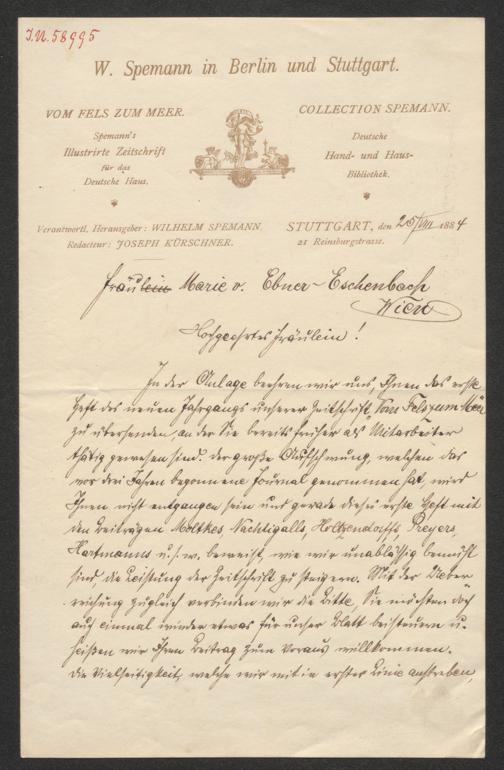 J.N. 58995
W. Spemann in Berlin und Stuttgart.
VOM FELS ZUM MEER.
Spemann's
Illustrirte Zeitschrift
für das
Deutsche Haus.
COLLECTION SPEMANN.
Deutsche
Hand- und Haus-
Bibliothek.
Verantwortl. Herausgeber: WILHELM SPEMANN.
Redacteur: JOSEPH KÜRSCHNER.
STUTTGART, den 25/VIII 1884
21 Reinsburgstrasse.
Fräulein Marie v. Ebner-Eschenbach
Wien
Hochgeehrtes Fräulein!
In der Anlage beehren wir uns, Ihnen das erste
Heft des neuen Jahrgangs unserer Zeitschrift, Vom Fels zum Meer
zu übersenden, an der Sie bereits früher als Mitarbeiter
thätig gewesen sind. Der große Aufschwung, welchen das
vor drei Jahren begonnene Journal genommen hat, wird
Ihnen nicht entgangen sein und gerade dieses erste Heft mit
den Beiträgen Moltkes, Nachtigalls, Holtzendorffs, Preyers,
Hartmanns u.s.w. beweist, wie wir unablässig bemüht
sind, die Leistung der Zeitschrift zu steigern. Mit der Ueber-
reichung zugleich verbinden wir die Bitte, Sie möchten doch
auch einmal wieder etwas für unser Blatt beisteuern u.
heißen wir Ihren Beitrag zum Voraus willkommen.
Die Vielseitigkeit, welche wir mit in erster Linie anstreben,